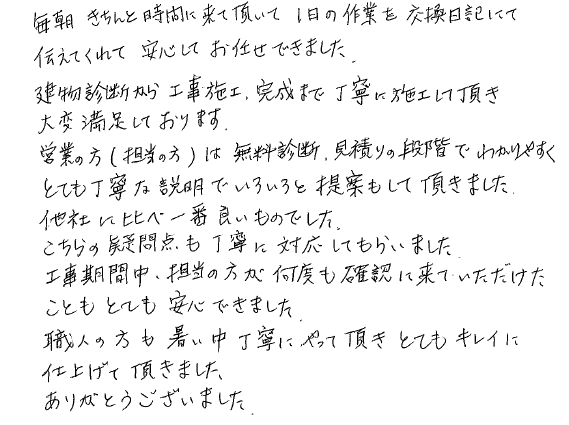 毎朝 きちんと時間に来て頂いて 1日の作業を 交換日記にて
伝えてくれて 安心して お任せできました。
建物診断から 工事施工、完成まで 丁寧に施工して頂き
大変満足しております。
営業の方(担当の方)は 無料診断、見積りの段階で わかりやすく
とても丁寧な説明でいろいろと提案もして頂きました。
他社に比べ一番良いものでした。
こちらの疑問点も丁寧に対応してもらいました。
工事期間中、担当の方が何度も確認に来ていただけた
こともとても 安心できました。
職人の方も 暑い中 丁寧にやって頂き とてもキレイに
仕上げて頂きました、
ありがとうございました。